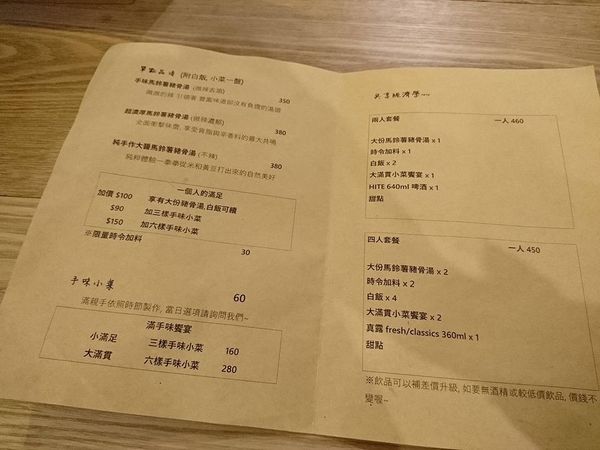 單點品項 (附白飯, 小菜一盤)
手味馬鈴薯豬骨湯 (微辣古順) 350
超濃厚馬鈴薯豬骨湯 (微辣濃郁) 380
全面衝擊味蕾, 享受骨脂與辛香料的最大共鳴
純手作大醬馬鈴薯豬骨湯 (不辣)
純粹體驗一泰泰從米和黃豆打出來的自然美好 380
一個人的滿足
加價 $100 享有大份豬骨湯,白飯可續
$90 加三樣手味小菜
$150 加六樣手味小菜
※限量時令加料 30
手味小菜 60
滿親手依照時節製作, 當日選項請詢問我們~
滿手味饗宴
小滿足 三樣手味小菜 160
大滿貫 六樣手味小菜 280
共享經濟學~~
兩人套餐 一人 460
大份馬鈴薯豬骨湯 x 1
時令加料 x 1
白飯 x 2
大滿貫小菜饗宴 x 1
HITE 640ml 啤酒 x 1
甜點
四人套餐 一人 450
大份馬鈴薯豬骨湯 x 2
時令加料 x 2
白飯 x 4
大滿貫小菜饗宴 x 2
真露 fresh/classics 360ml x 1
甜點
※飲品可以補差價升級, 如要無酒精或較低價飲品, 價錢不
變喔~